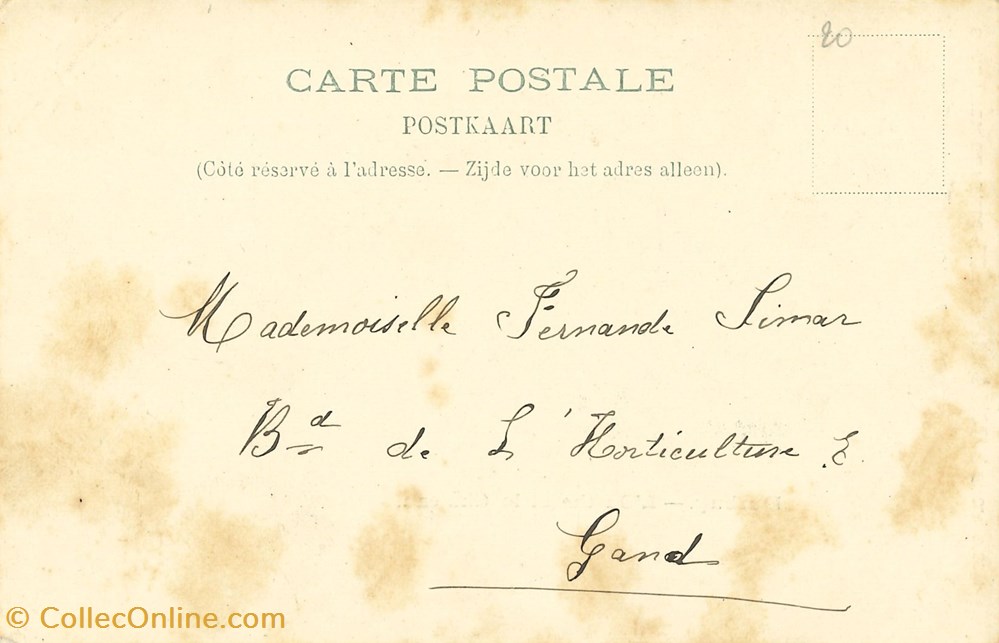 20
CARTE POSTALE
POSTKAART
(Côté réservé à l'adresse. — Zijde voor het adres alleen).
Mademoiselle Fernande Simar
Bd de L'Horticulture E.
Gand
© CollecOnline.com